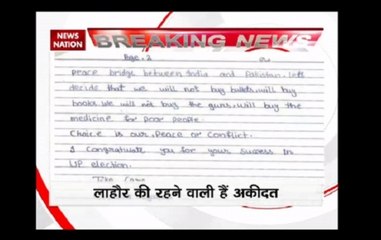 NEWS
NATION
BREAKING NEWS
Page. 2
peace bridge between India and Pakistan. Lets
decide that we will not buy bullets, will buy
books. We will not buy the guns, will buy the
medicine for poor people.
Choice is our. Peace or Conflict.
I Congratulate you for your success in
UP election.
लाहौर की रहने वाली हैं अकीदत